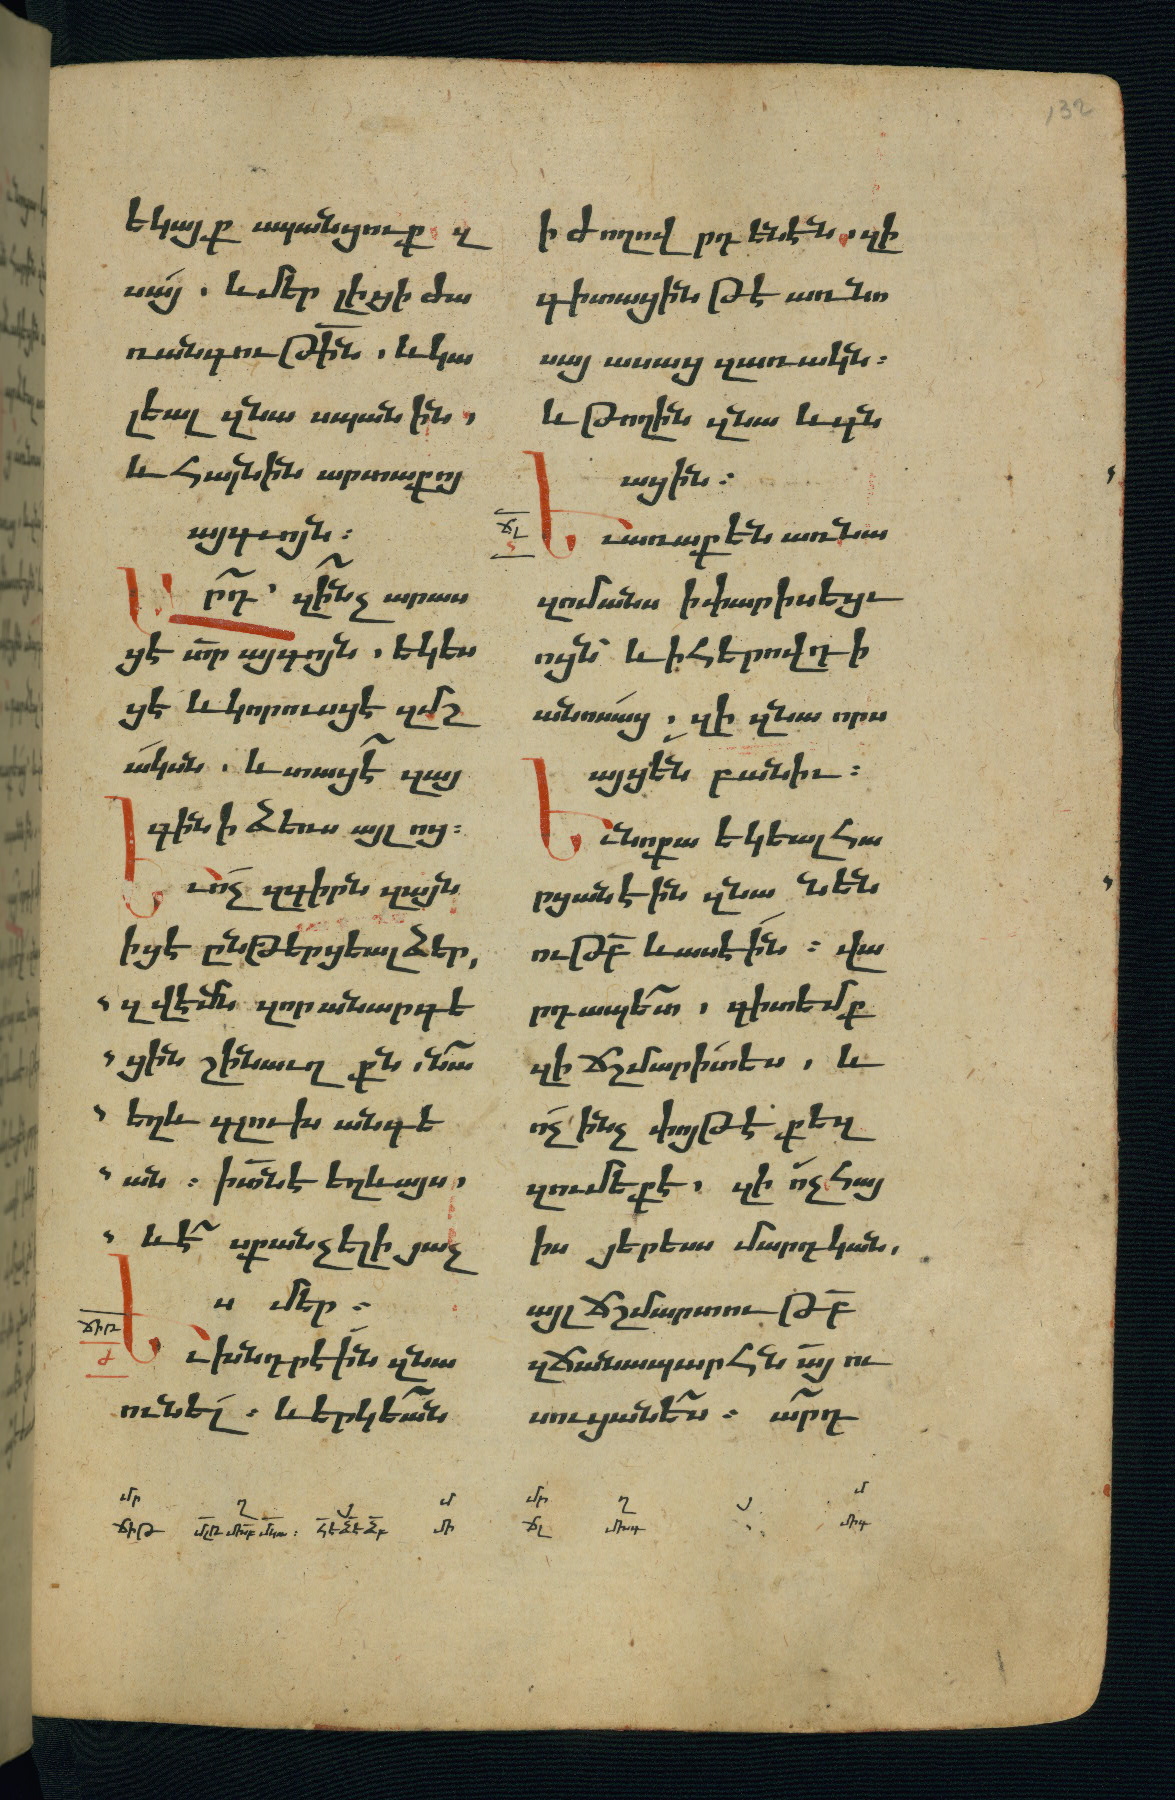 132
եկայք սպանցուք զ
սայ . և մեր լիցի ժա
ռանգութիւն , և կա
լեալ զնա սպանին ,
և հանին արտաքոյ
այգւոյն :
Արդ՝ զինչ արաս
ցէ տր այգոյն , եկես
ցէ և կորուսցէ զմշ
ակսն . և տացէ զայ
գին ի ձեռս այլոց :
Եւ ոչ զգիրն զայն
իցէ ընթերցեալ ձեր,
զվէմն զոր անարգե
ցին շինաւղքն , նա
եղև գլուխ անգե
ան : ի տնէ եղև այս ,
և է սքանչելի յաչ
ս մեր :
ՃԻԹ
Ժ
Եւ խնդրէին զնա
ունել : և երկեան
ի ժողովրդենէն , զի
գիտացին թէ առ նո
սայ ասաց զառակն :
և թողին զնա և գն
ացին :
ՃԼ
Եւ առաքեն առ նա
զոմանս ի փարիսեցւ
ոցն և ի հերովդի
անոսաց , զի զնա որս
այցեն բանիւ :
Եւ նոքա եկեալ հա
րցանէին զնա նեն
ութբ և ասէին : վա
րդապետ , գիտեմք
զի ճշմարիտ ես , և
ոչ ինչ փոյթ է քեզ
զումեքէ , զի ոչ հայ
իս յերեսս մարդկան ,
այլ ճշմարտութբ
զճանապարհն այ ու
սուցանես : արդ